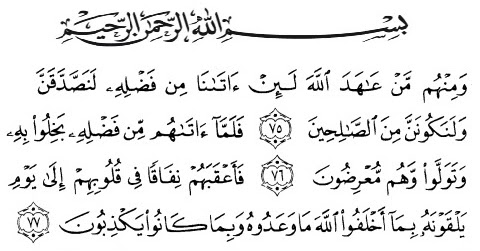 بِسْمِ اللَّهِ الرَّحْمَٰنِ الرَّحِيمِ
وَمِنْهُم مَّنْ عَاهَدَ اللَّهَ لَئِنْ ءَاتَانَا مِن فَضْلِهِ لَنَصَّدَّقَنَّ
وَلَنَكُونَنَّ مِنَ الصَّالِحِينَ ٧٥ فَلَمَّا ءَاتَاهُم مِّن فَضْلِهِ بَخِلُوا بِهِ
وَتَوَلَّوا وَّهُم مُّعْرِضُونَ ٧٦ فَأَعْقَبَهُمْ نِفَاقًا فِي قُلُوبِهِمْ إِلَىٰ يَوْمِ
يَلْقَوْنَهُ بِمَا أَخْلَفُوا اللَّهَ مَا وَعَدُوهُ وَبِمَا كَانُوا يَكْذِبُونَ ٧٧